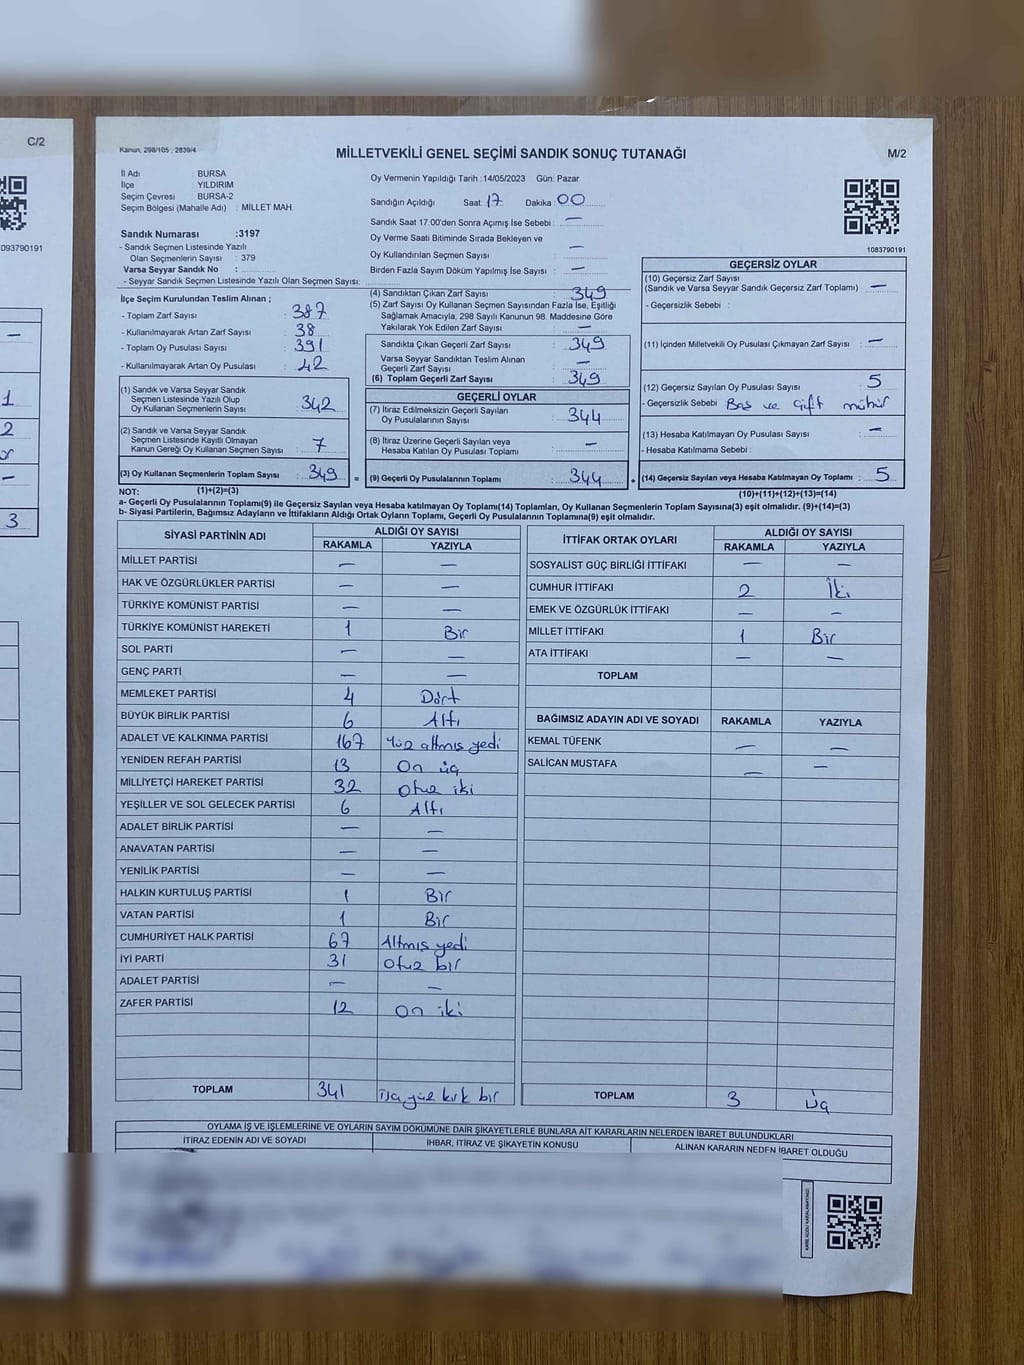 C/2
093790191
1
2
3
Kanun, 298/105 , 2839/4
MİLLETVEKİLİ GENEL SEÇİMİ SANDIK SONUÇ TUTANAĞI
M/2
İl Adı : BURSA
İlçe YILDIRIM
Seçim Çevresi : BURSA-2
Seçim Bölgesi (Mahalle Adı) : MİLLET MAH.
Sandık Numarası :3197
- Sandık Seçmen Listesinde Yazılı
Olan Seçmenlerin Sayısı : 379
Varsa Seyyar Sandık No :
- Seyyar Sandık Seçmen Listesinde Yazılı Olan Seçmen Sayısı:
Oy Vermenin Yapıldığı Tarih :14/05/2023 Gün: Pazar
Sandığın Açıldığı Saat: 17 Dakika 00
Sandık Saat 17.00'den Sonra Açılmış İse Sebebi : —
Oy Verme Saati Bitiminde Sırada Bekleyen ve
Oy Kullandırılan Seçmen Sayısı : —
Birden Fazla Sayım Döküm Yapılmış İse Sayısı : —
1083790191
İlçe Seçim Kurulundan Teslim Alınan ;
- Toplam Zarf Sayısı : 387
- Kullanılmayarak Artan Zarf Sayısı : 38
- Toplam Oy Pusulası Sayısı : 391
- Kullanılmayarak Artan Oy Pusulası : 42
(1) Sandık ve Varsa Seyyar Sandık
Seçmen Listesinde Yazılı Olup
Oy Kullanan Seçmenlerin Sayısı : 342
(2) Sandık ve Varsa Seyyar Sandık
Seçmen Listesinde Kayıtlı Olmayan
Kanun Gereği Oy Kullanan Seçmen Sayısı : 7
(3) Oy Kullanan Seçmenlerin Toplam Sayısı : 349
(4) Sandıktan Çıkan Zarf Sayısı : 349
(5) Zarf Sayısı Oy Kullanan Seçmen Sayısından Fazla İse, Eşitliği
Sağlamak Amacıyla; 298 Sayılı Kanunun 98. Maddesine Göre
Yakılarak Yok Edilen Zarf Sayısı : —
Sandıkta Çıkan Geçerli Zarf Sayısı : 349
Varsa Seyyar Sandıktan Teslim Alınan
Geçerli Zarf Sayısı : —
(6) Toplam Geçerli Zarf Sayısı : 349
GEÇERLİ OYLAR
(7) İtiraz Edilmeksizin Geçerli Sayılan
Oy Pusulalarının Sayısı : 344
(8) İtiraz Üzerine Geçerli Sayılan veya
Hesaba Katılan Oy Pusulası Toplamı : —
= (9) Geçerli Oy Pusulalarının Toplamı : 344
GEÇERSİZ OYLAR
(10) Geçersiz Zarf Sayısı
(Sandık ve Varsa Seyyar Sandık Geçersiz Zarf Toplamı) : —
- Geçersizlik Sebebi :
(11) İçinden Milletvekili Oy Pusulası Çıkmayan Zarf Sayısı : —
(12) Geçersiz Sayılan Oy Pusulası Sayısı : 5
- Geçersizlik Sebebi : Boş ve çift mühür
(13) Hesaba Katılmayan Oy Pusulası Sayısı : —
- Hesaba Katılmama Sebebi :
+ (14) Geçersiz Sayılan veya Hesaba Katılmayan Oy Toplamı : 5
NOT: (1)+(2)=(3)
(10)+(11)+(12)+(13)=(14)
a- Geçerli Oy Pusulalarının Toplamı(9) ile Geçersiz Sayılan veya Hesaba katılmayan Oy Toplamı(14) Toplamları, Oy Kullanan Seçmenlerin Toplam Sayısına(3) eşit olmalıdır. (9)+(14)=(3)
b- Siyasi Partilerin, Bağımsız Adayların ve İttifakların Aldığı Ortak Oyların Toplamı, Geçerli Oy Pusulalarının Toplamına(9) eşit olmalıdır.
SİYASİ PARTİNİN ADI ALDIĞI OY SAYISI
RAKAMLA YAZIYLA
MİLLET PARTİSİ — —
HAK VE ÖZGÜRLÜKLER PARTİSİ — —
TÜRKİYE KOMÜNİST PARTİSİ — —
TÜRKİYE KOMÜNİST HAREKETİ 1 Bir
SOL PARTİ — —
GENÇ PARTİ — —
MEMLEKET PARTİSİ 4 Dört
BÜYÜK BİRLİK PARTİSİ 6 Altı
ADALET VE KALKINMA PARTİSİ 167 Yüz altmış yedi
YENİDEN REFAH PARTİSİ 13 On üç
MİLLİYETÇİ HAREKET PARTİSİ 32 Otuz iki
YEŞİLLER VE SOL GELECEK PARTİSİ 6 Altı
ADALET BİRLİK PARTİSİ — —
ANAVATAN PARTİSİ — —
YENİLİK PARTİSİ — —
HALKIN KURTULUŞ PARTİSİ 1 Bir
VATAN PARTİSİ 1 Bir
CUMHURİYET HALK PARTİSİ 67 Altmış yedi
İYİ PARTİ 31 Otuz bir
ADALET PARTİSİ — —
ZAFER PARTİSİ 12 On iki
TOPLAM 341 üç yüz kırk bir
İTTİFAK ORTAK OYLARI ALDIĞI OY SAYISI
RAKAMLA YAZIYLA
SOSYALİST GÜÇ BİRLİĞİ İTTİFAKI — —
CUMHUR İTTİFAKI 2 İki
EMEK VE ÖZGÜRLÜK İTTİFAKI — —
MİLLET İTTİFAKI 1 Bir
ATA İTTİFAKI — —
TOPLAM
BAĞIMSIZ ADAYIN ADI VE SOYADI RAKAMLA YAZIYLA
KEMAL TÜFENK — —
SALİCAN MUSTAFA — —
TOPLAM 3 üç
OYLAMA İŞ VE İŞLEMLERİNE VE OYLARIN SAYIM DÖKÜMÜNE DAİR ŞİKAYETLERLE BUNLARA AİT KARARLARIN NELERDEN İBARET BULUNDUKLARI
İTİRAZ EDENİN ADI VE SOYADI İHBAR, İTİRAZ VE ŞİKAYETİN KONUSU ALINAN KARARIN NEDEN İBARET OLDUĞU